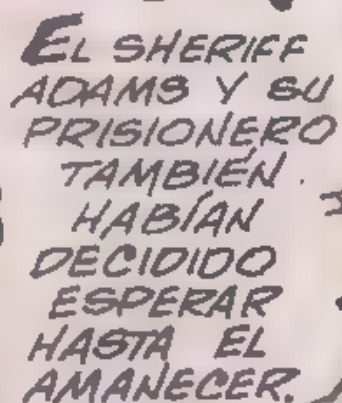 EL SHERIFF
ADAMS Y SU
PRISIONERO
TAMBIÉN
HABÍAN
DECIDIDO
ESPERAR
HASTA EL
AMANECER.